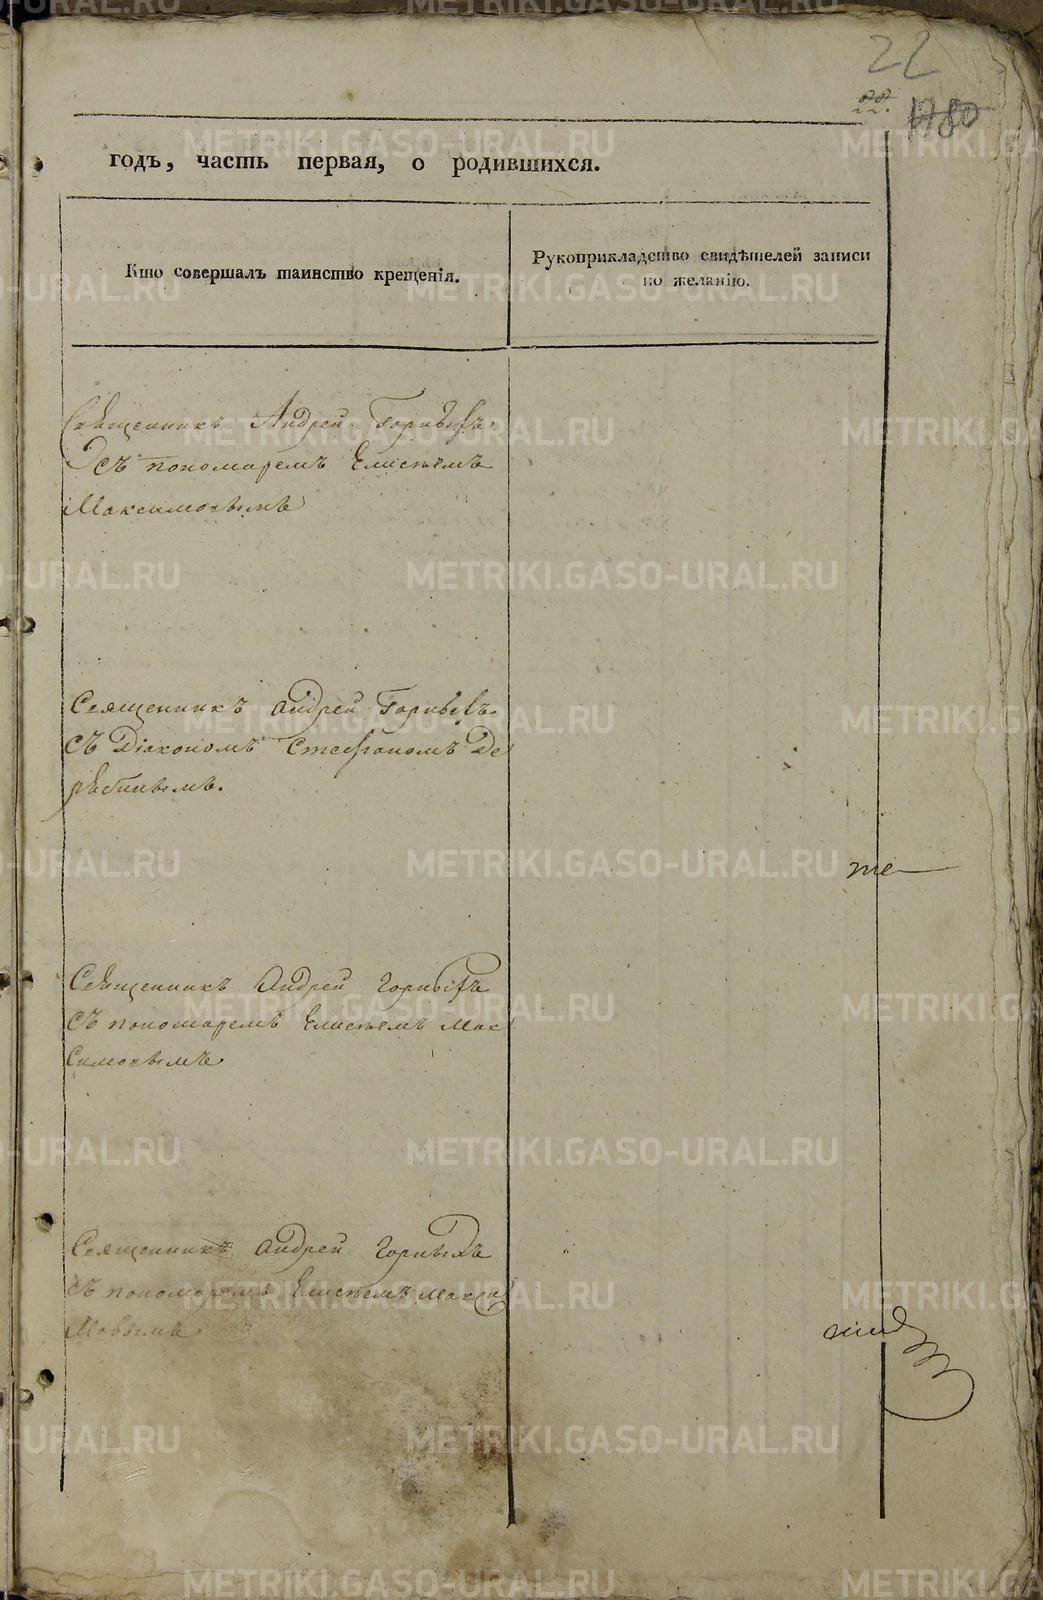 22
22.
1180
годъ, часть первая, о родившихся.
Кто совершалъ таинство крещенія.
Рукоприкладство свидѣтелей записи
по желанію.
Священникъ Андрей Горныхъ
съ пономаремъ Елисѣемъ
Максимовымъ
Священникъ Андрей Горныхъ
съ Діакономъ Стефаномъ Де
рябинымъ.
Священникъ Андрей Горныхъ
съ пономаремъ Елисѣемъ Мак
симовымъ
Священникъ Андрей Горныхъ
съ пономаремъ Елисѣемъ Макси
мовымъ
METRIKI.GASO-URAL.RU